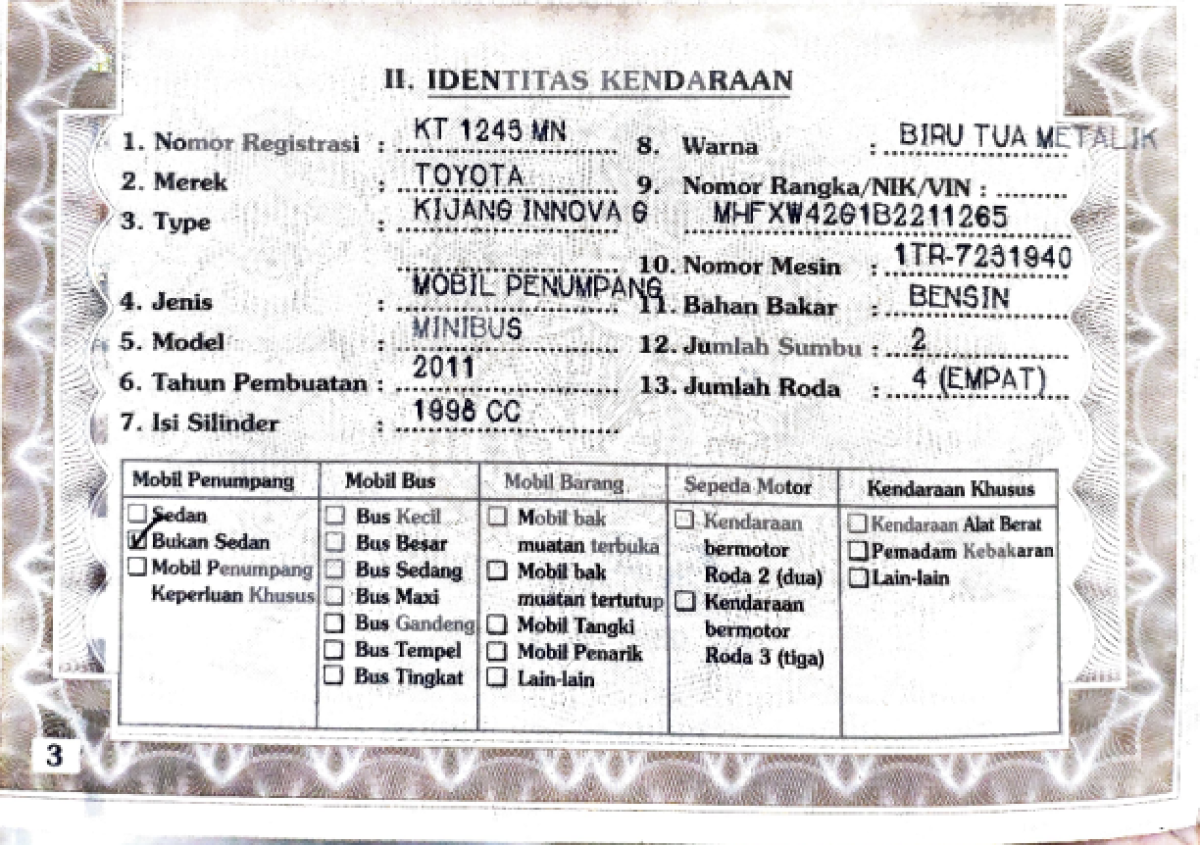 II. IDENTITAS KENDARAAN
1. Nomor Registrasi : KT 1243 MN
2. Merek : TOYOTA
3. Type : KIJANG INNOVA G
4. Jenis : MOBIL PENUMPANG
5. Model : MINIBUS
6. Tahun Pembuatan : 2011
7. Isi Silinder : 1998 CC
8. Warna : BIRU TUA METALIK
9. Nomor Rangka/NIK/VIN :
MHFXW42G1B2211265
10. Nomor Mesin : 1TR-7231940
11. Bahan Bakar : BENSIN
12. Jumlah Sumbu : 2
13. Jumlah Roda : 4 (EMPAT)
Mobil Penumpang
Sedan
Bukan Sedan
Mobil Penumpang
Keperluan Khusus
Mobil Bus
Bus Kecil
Bus Besar
Bus Sedang
Bus Maxi
Bus Gandeng
Bus Tempel
Bus Tingkat
Mobil Barang
Mobil bak
muatan terbuka
Mobil bak
muatan tertutup
Mobil Tangki
Mobil Penarik
Lain-lain
Sepeda Motor
Kendaraan
bermotor
Roda 2 (dua)
Kendaraan
bermotor
Roda 3 (tiga)
Kendaraan Khusus
Kendaraan Alat Berat
Pemadam Kebakaran
Lain-lain
3